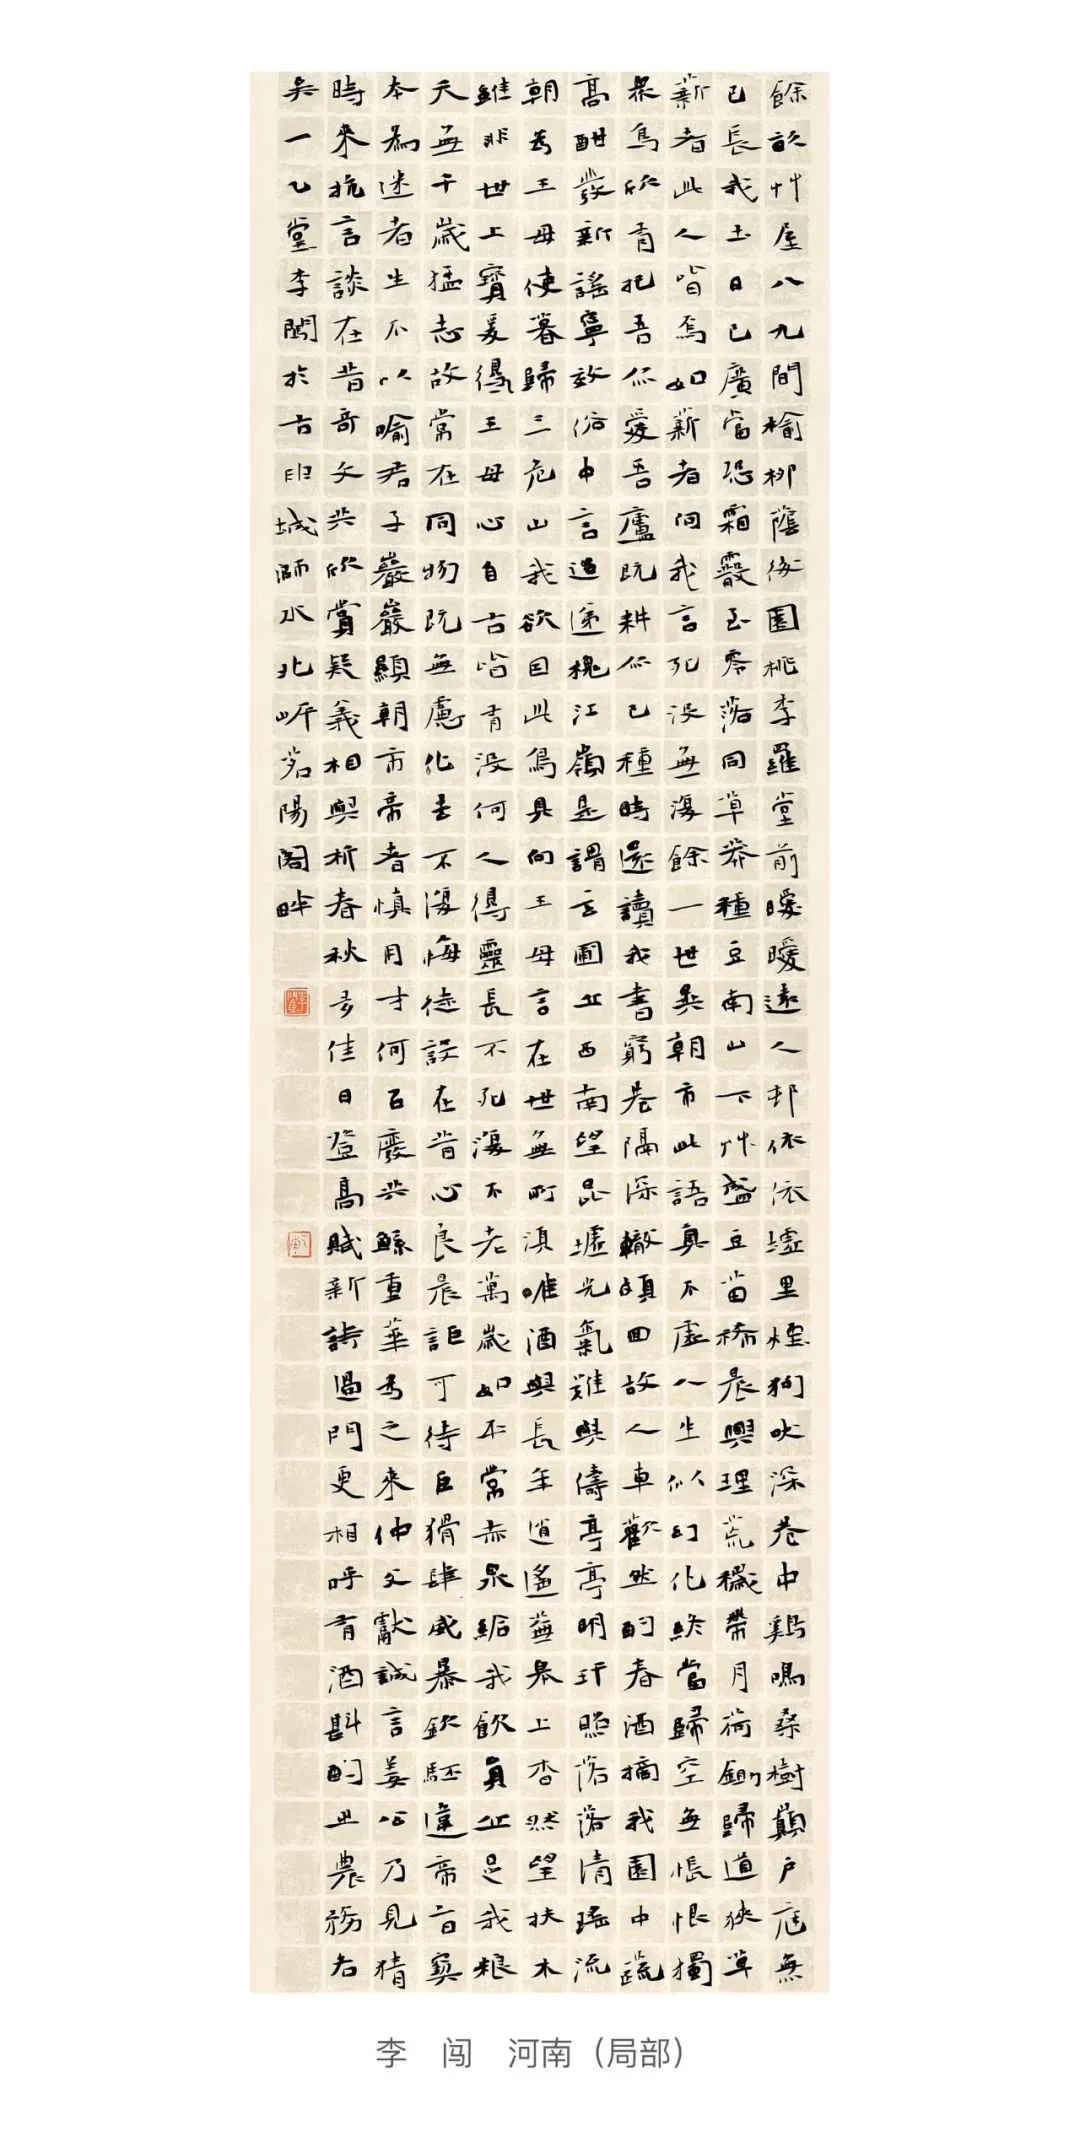 餘畝艸屋八九間榆柳蔭後園桃李羅堂前曖曖遠人邨依依墟里煙狗吠深巷中鷄鳴桑樹巔户庭無
已長我土日已廣常恐霜霰至零落同草莽種豆南山下艸盛豆苗稀晨興理荒穢帶月荷鋤歸道狹草
薪者此人皆焉如薪者向我言死没無復餘一世異朝市此語真不虛人生似幻化終當歸空無悵恨獨
衆鳥欣有託吾亦愛吾廬既耕亦已種時還讀我書窮巷隔深轍頗回故人車歡然酌春酒摘我園中蔬
高酣發新謡寧效俗中言迢遞槐江嶺是謂玄圃丘西南望昆墟光氣難與儔亭亭明玕照落落清瑶流
朝為王母使暮歸三危山我欲因此鳥具向王母言在世無所須唯酒與長年逍遙蕪皋上杳然望扶木
雖非世上寶爰得王母心自古皆有没何人得靈長不死復不老萬歲如平常赤泉給我飲員丘足我糧
天無干歲猛志故常在同物既無慮化去不復悔徒設在昔心良晨詎可待巨猾肆威暴欽駓違帝旨窫
本為迷者生不以喻君子巖巖顯朝市帝者慎用才何以廢共鯀重華為之來仲父獻誠言姜公乃見猜
時來抗言談在昔奇文共欣賞疑義相與析春秋多佳日登高賦新詩過門更相呼有酒斟酌之農務各
吳一乙堂李闖於古申城浉水北岍茗陽閣畔
李 闯 河南（局部）